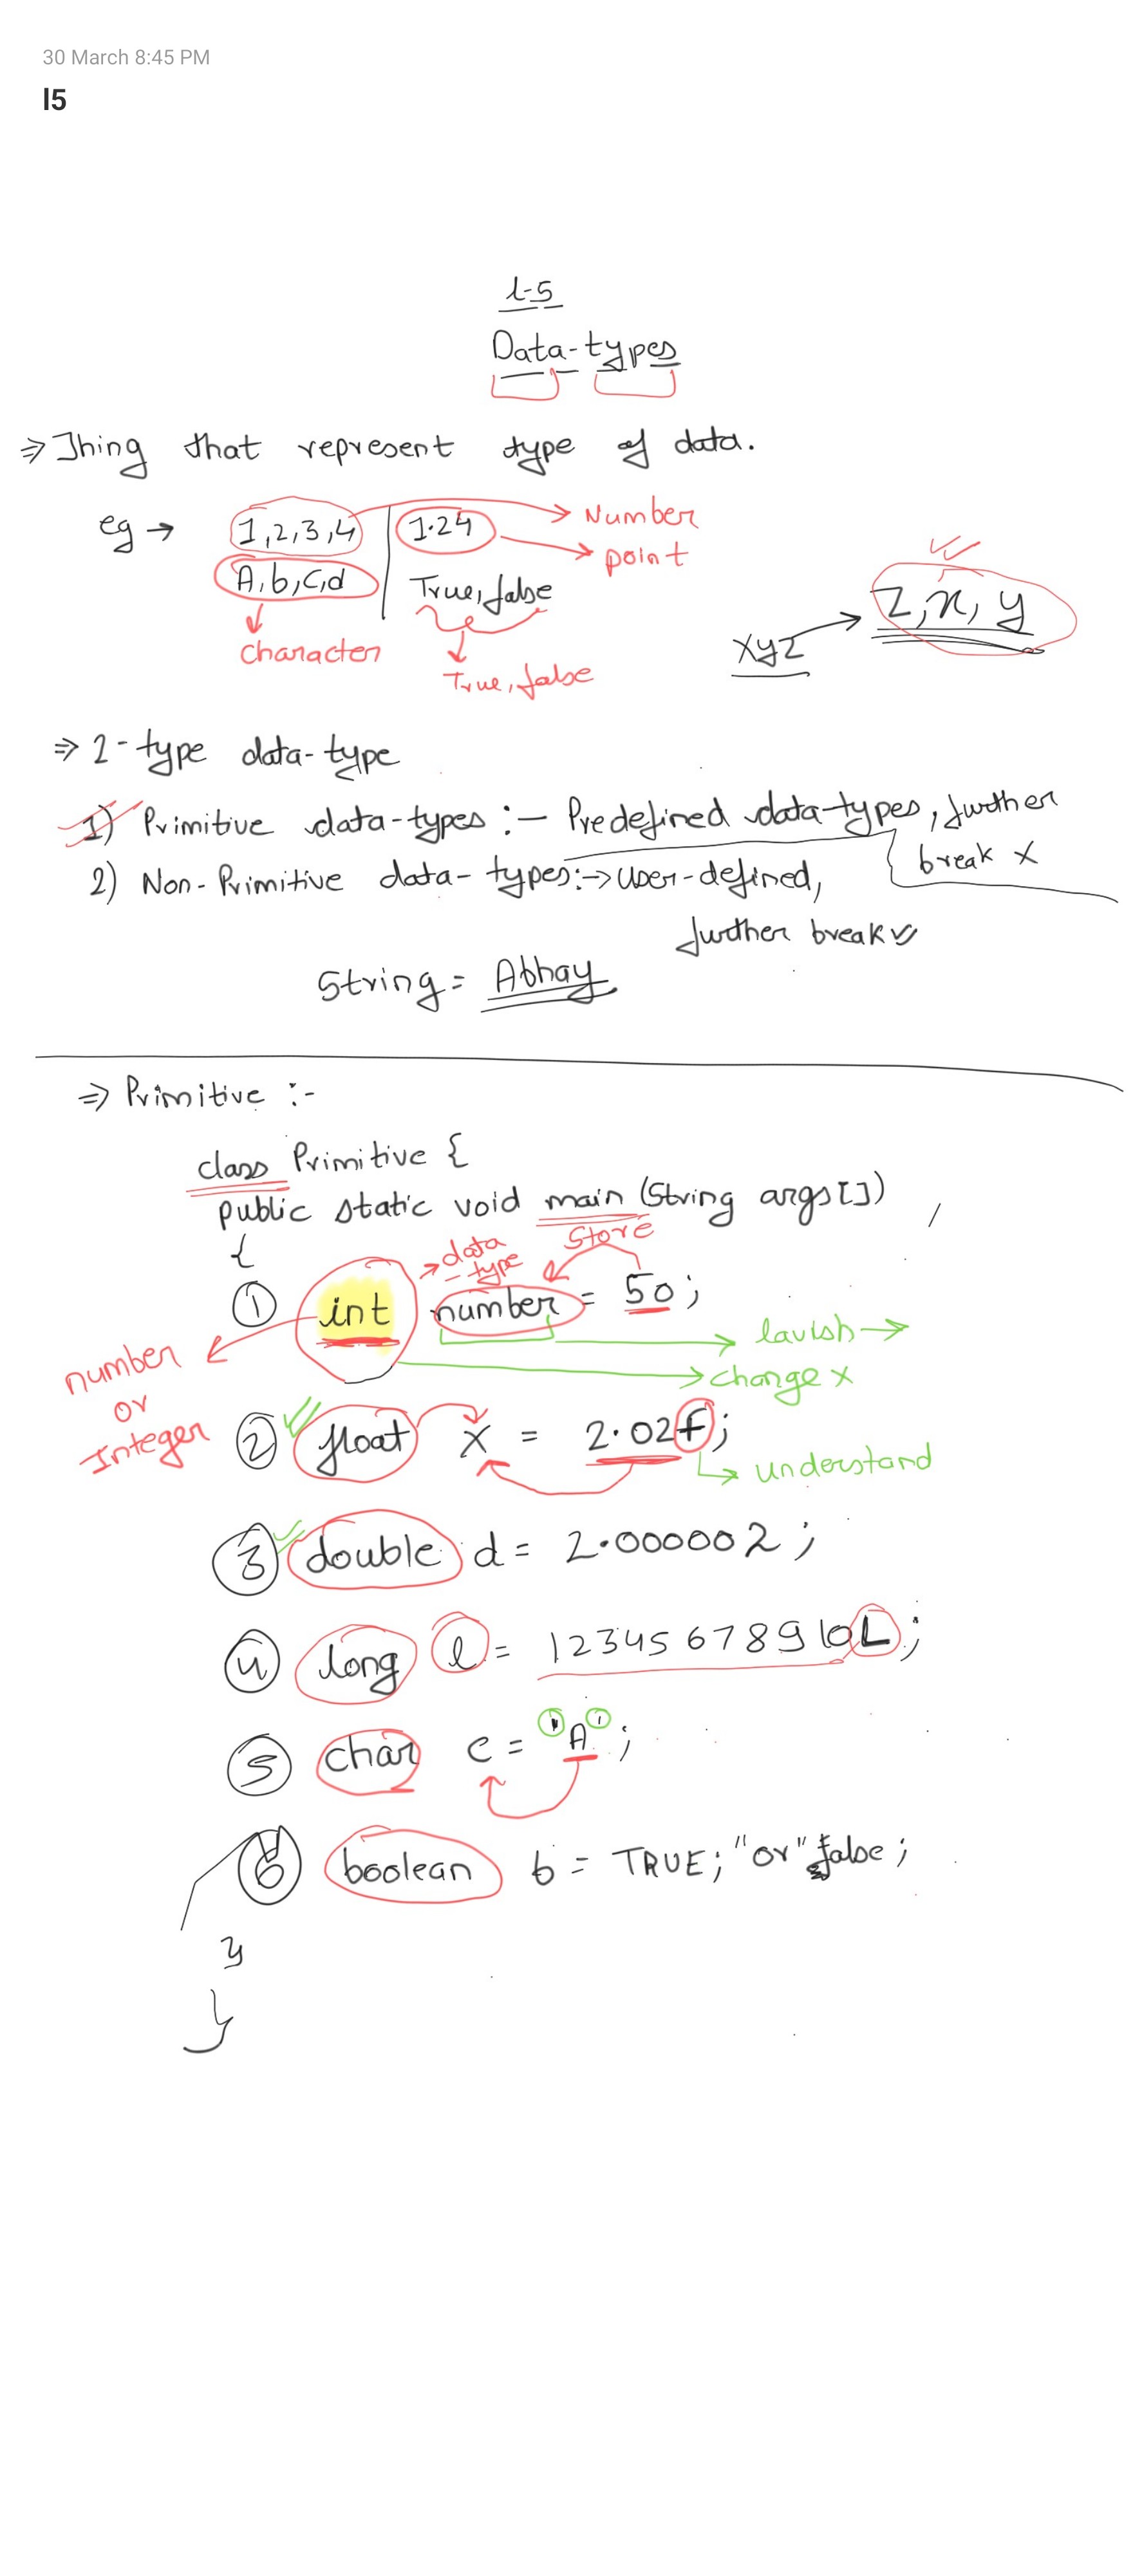 30 March 8:45 PM
l5
L-5
Data-types
⇒ Thing that represent type of data.
eg → 1,2,3,4 | 1.24 → Number
→ point
A,b,c,d True,false
character
True,false
xyz → z,x,y
⇒ 2-type data-type
1) Primitive data-types :- Predefined data-types, further
break x
2) Non-Primitive data-types:→ user-defined,
further break ✓
String = Abhay
⇒ Primitive :-
class Primitive {
public static void main (String args[])
{
→ data
-type
Store
① int number = 50;
lavish →
change x
number
or
Integer
② float x = 2.02f;
understand
③ double d = 2.000002;
④ long l = 12345678910L;
⑤ char c = 'A';
⑥ boolean b = TRUE; "or" false;
}
}